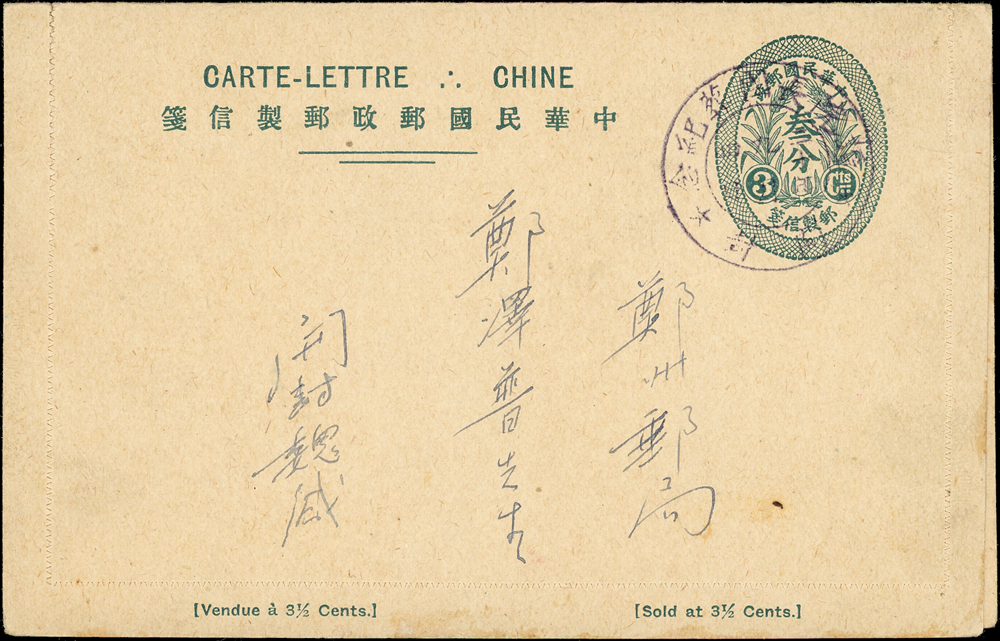 CARTE-LETTRE ∴ CHINE
中華民國郵政郵製信箋
中華民國郵政
叄分
3 Cts
郵製信箋
紀念
鄭州郵局
鄭澤普先生
開封魏緘
[Vendue à 3½ Cents.]
[Sold at 3½ Cents.]